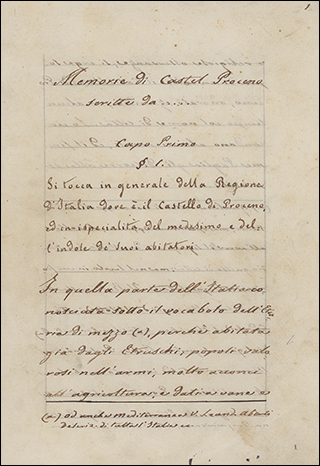 Memorie di Castel Proceno
scritte da . . . .
Capo Primo
§ 1.
Si tocca in generale della Regione
d'Italia dove è il Castello di Proceno,
ed in ispecialità del medesimo e del-
l'indole de' suoi abitatori
In quella parte dell'Italia co-
nosciuta sotto il vocabolo dell'Etru-
ria di mezzo (a), perchè abitata
già dagli Etruschi, popoli valo
rosi nell'armi, molto acconci
all'agricoltura, e dati a vane
(a) od anche mediterranea V. Leand. Alberti
descriz. di tutta l'Italia